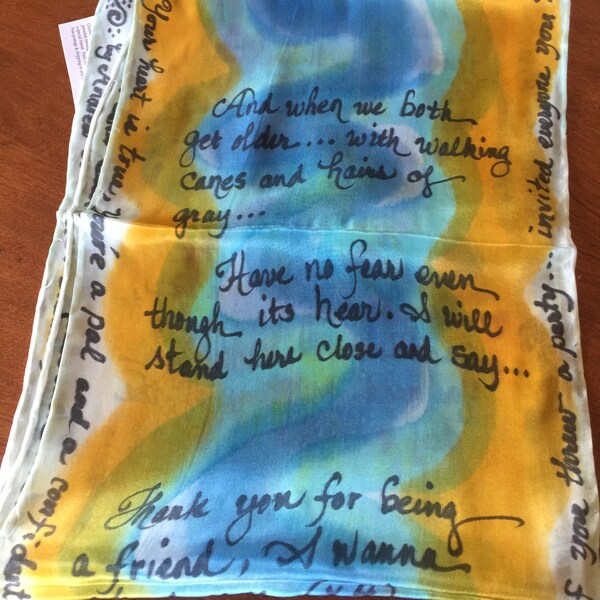 And when we both
get older... with walking
canes and hairs of
gray...
Have no fear even
though its hear. I will
stand here close and say...
Thank you for being
a friend, I wanna
Your heart is true, You're a pal and a confidant
f you threw a party... invited everyone you